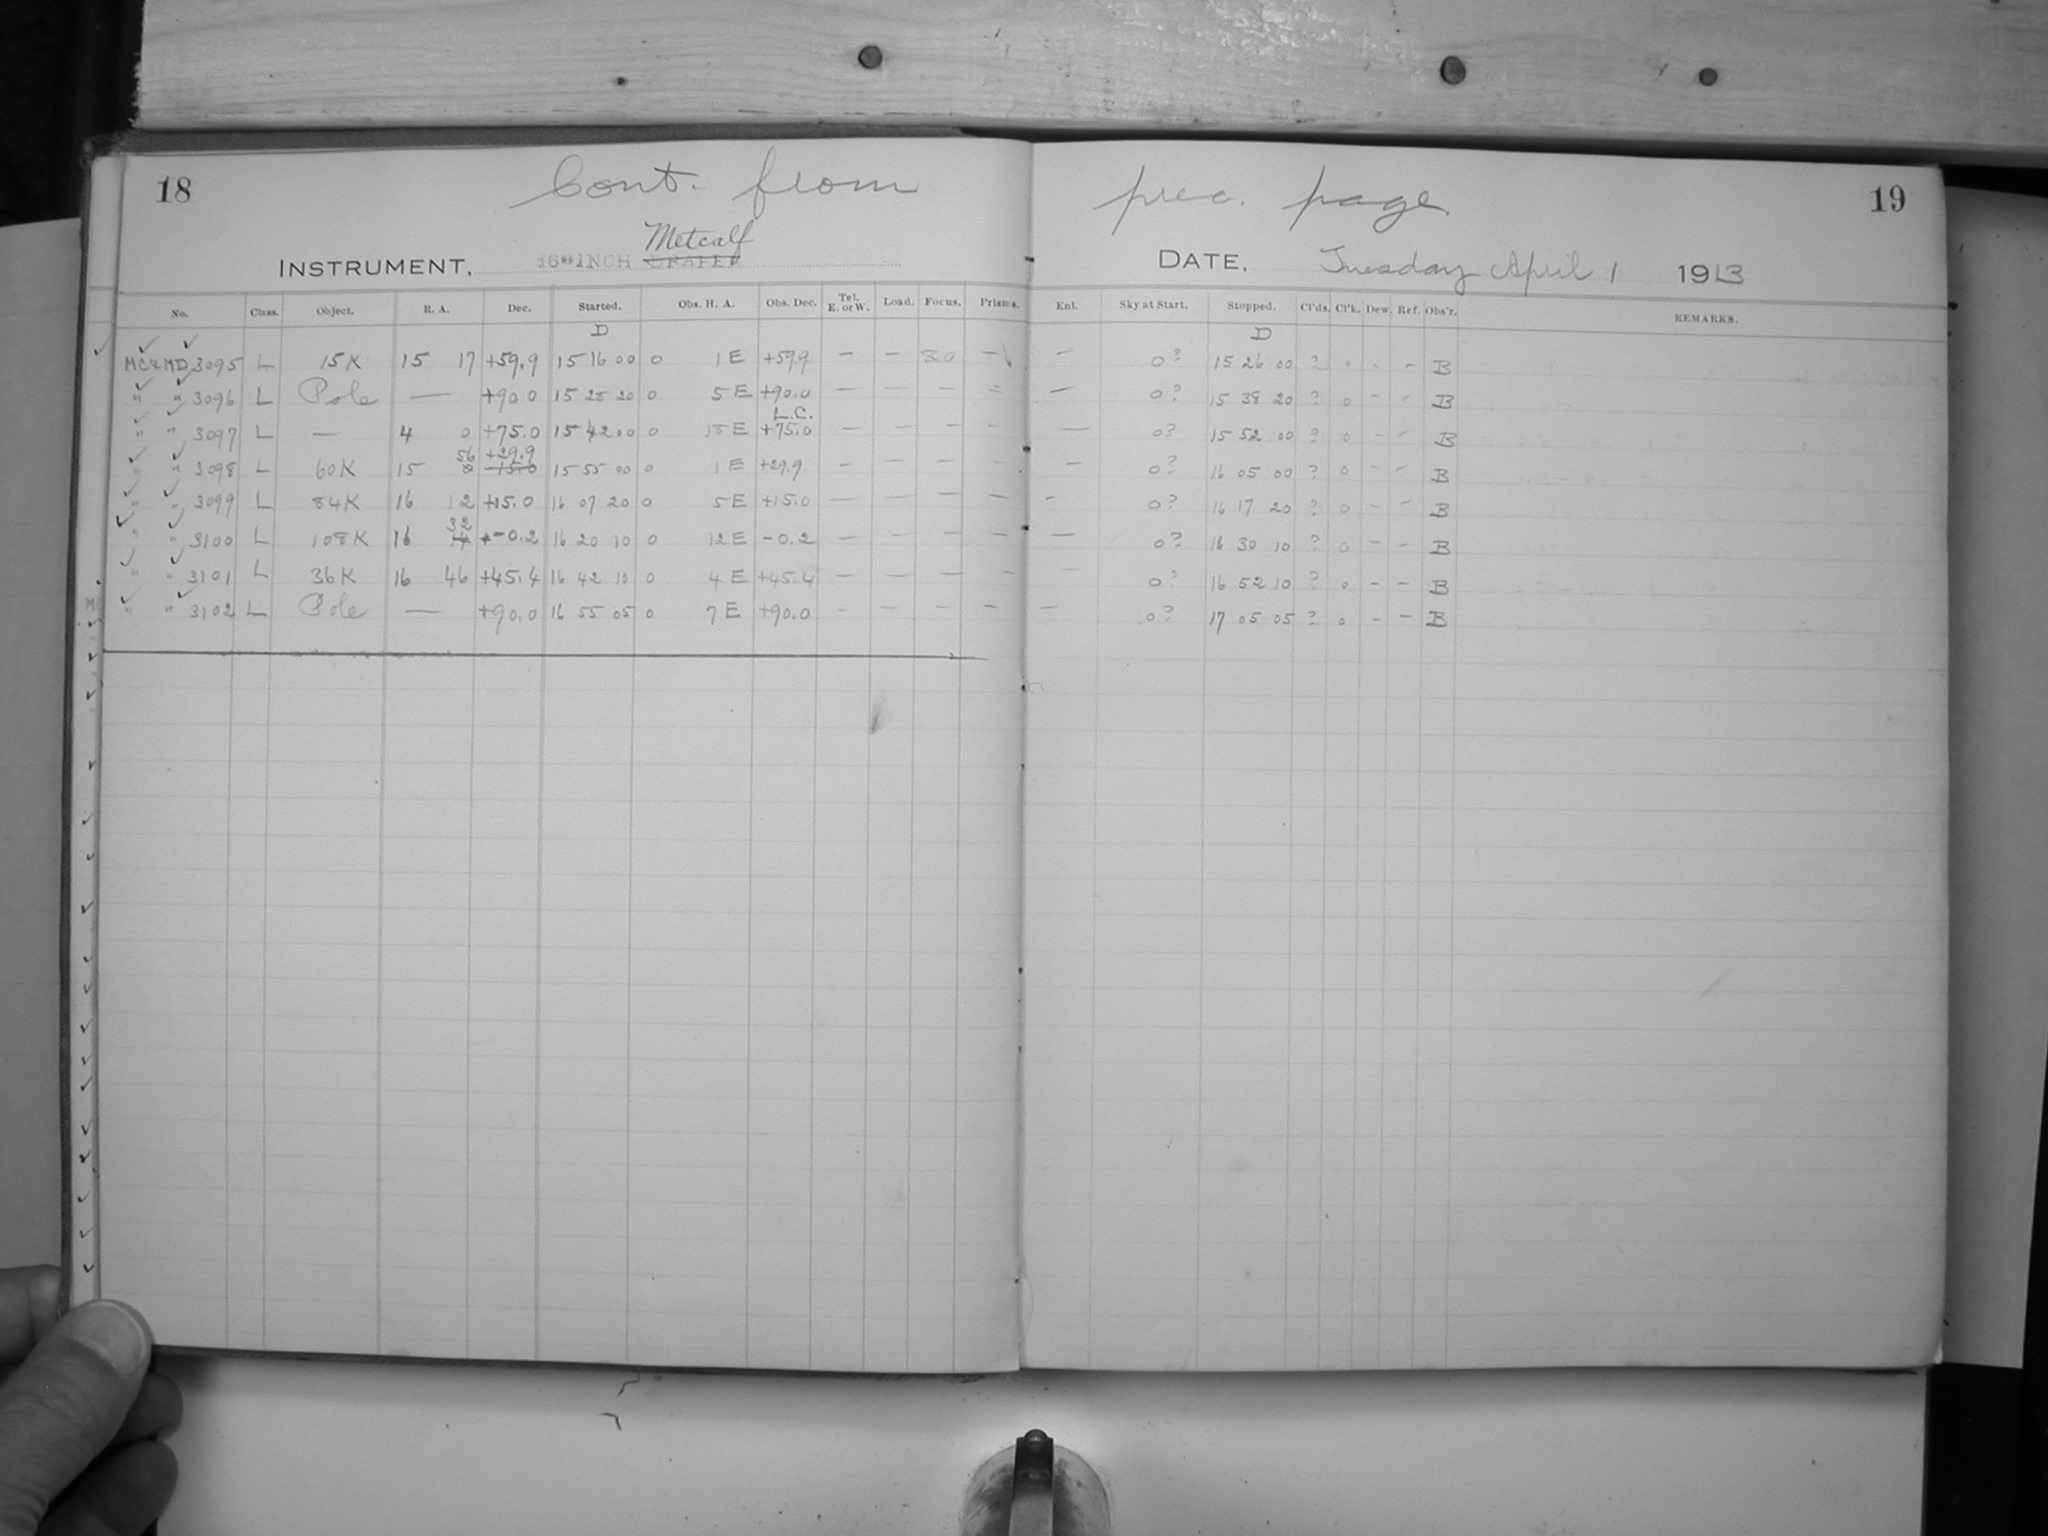 18 Cont. from prec. page. 19
Metcalf
INSTRUMENT, 16 INCH DRAPER DATE, Tuesday April 1 1913
No. Class. Object. R. A. Dec. Started. Obs. H. A. Obs. Dec. Tel. E. or W. Load. Focus. Prisms. Enl. Sky at Start. Stopped. Cl'ds. Cl'k. Dew. Ref. Obs'r. REMARKS.
D D
MC & MD 3095 L 15K 15 17 +59.9 15 16 00 0 1 E +59.9 — — 80 — — 0? 15 26 00 ? 0 - - B
" " 3096 L Pole — +90.0 15 28 20 0 5 E +90.0 — — — = — 0? 15 38 20 ? 0 - - B
L.C.
" " 3097 L — 4 0 +75.0 15 42 00 0 18 E +75.0 — — — — — 0? 15 52 00 ? 0 - - B
56 +29.9
" " 3098 L 60K 15 8 +15.0 15 55 00 0 1 E +29.9 — — — — — 0? 16 05 00 ? 0 - - B
" " 3099 L 84K 16 12 +15.0 16 07 20 0 5 E +15.0 — — — — - 0? 16 17 20 ? 0 - - B
32
" " 3100 L 108K 16 +-0.2 16 20 10 0 12 E -0.2 — — — — — 0? 16 30 10 ? 0 - - B
" " 3101 L 36K 16 46 +45.4 16 42 10 0 4 E +45.4 — — — — — 0? 16 52 10 ? 0 - - B
" " 3102 L Pole — +90.0 16 55 05 0 7 E +90.0 - — — — — 0? 17 05 05 ? 0 - - B